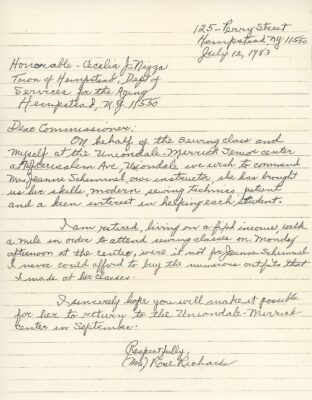 125- Perry Street
Hempstead, NY 11550
July 12, 1983
Honorable - Cecelia J. Nizza
Town of Hempstead, Dept of
Services for the Aging
Hempstead, N.Y. 11550
Dear Commissioner:
On behalf of the Sewing class and
myself at the Uniondale-Merrick Senior center
Jerusalem Ave. Uniondale we wish to commend
Mrs. Jeanne Schimmel our instructor, she has brought
us her skills, modern sewing technics, patent
and a keen interest in helping each student.
I am retired, living on a fifed income, walk
a mile in order to attend sewing classes on Monday
afternoon at the center, were it not for Jeanne Schimmel
I never could afford to buy the numerous outfits that
I made at her classes.
I sincerely hope you will make it possible
for her to return to the Uniondale-Merrick
center in September.
Respectfully,
(Mrs) Rose Richards